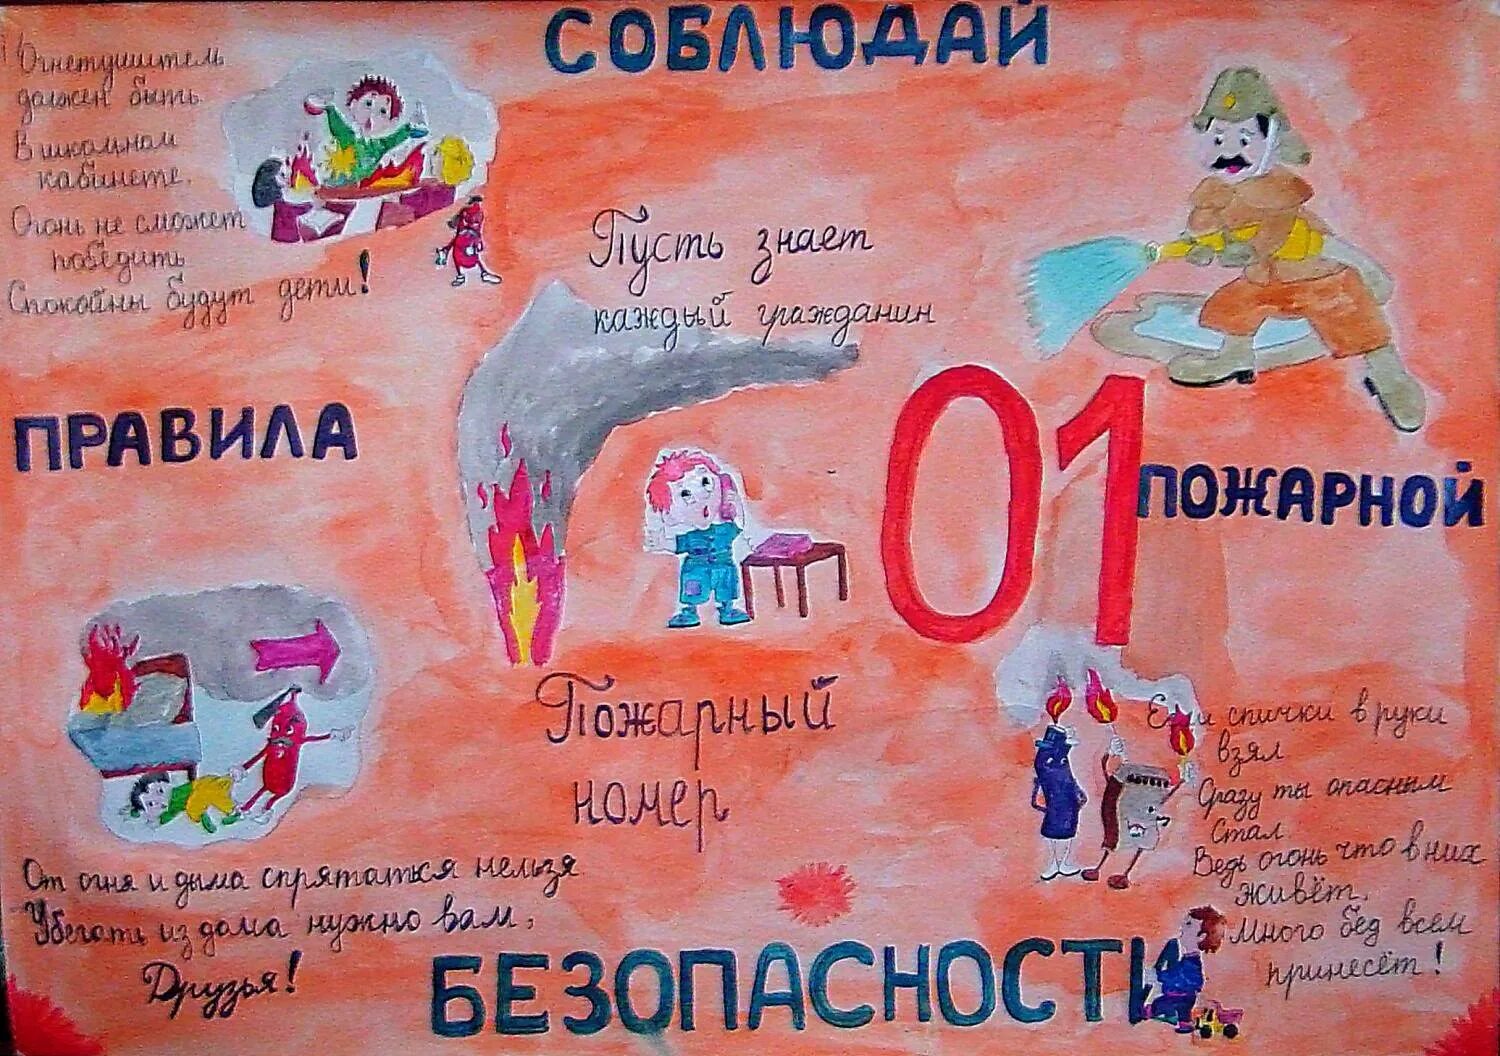 СОБЛЮДАЙ
Огнетушитель
должен быть
В школьном
кабинете.
Огонь не сможет
победить
Спокойны будут дети!
Пусть знает
каждый гражданин
ПРАВИЛА
01
ПОЖАРНОЙ
Пожарный
номер
Если спички в руки
взял
Сразу ты опасным
стал.
Ведь огонь что в них
живёт,
Много бед всем
принесёт!
От огня и дыма спрятаться нельзя
Убегать из дома нужно вам,
Друзья!
БЕЗОПАСНОСТИ